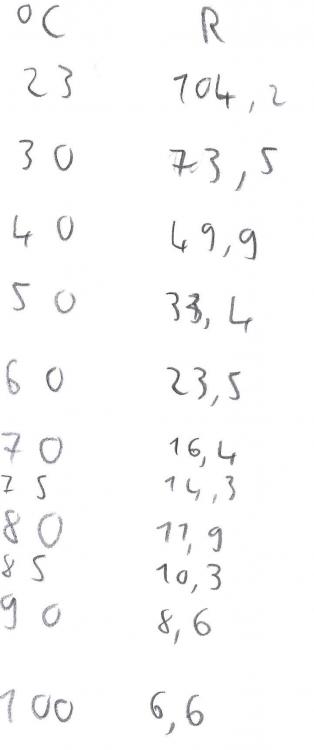 °C R
23 104,2
30 73,5
40 49,9
50 33,4
60 23,5
70 16,4
75 14,3
80 11,9
85 10,3
90 8,6
100 6,6